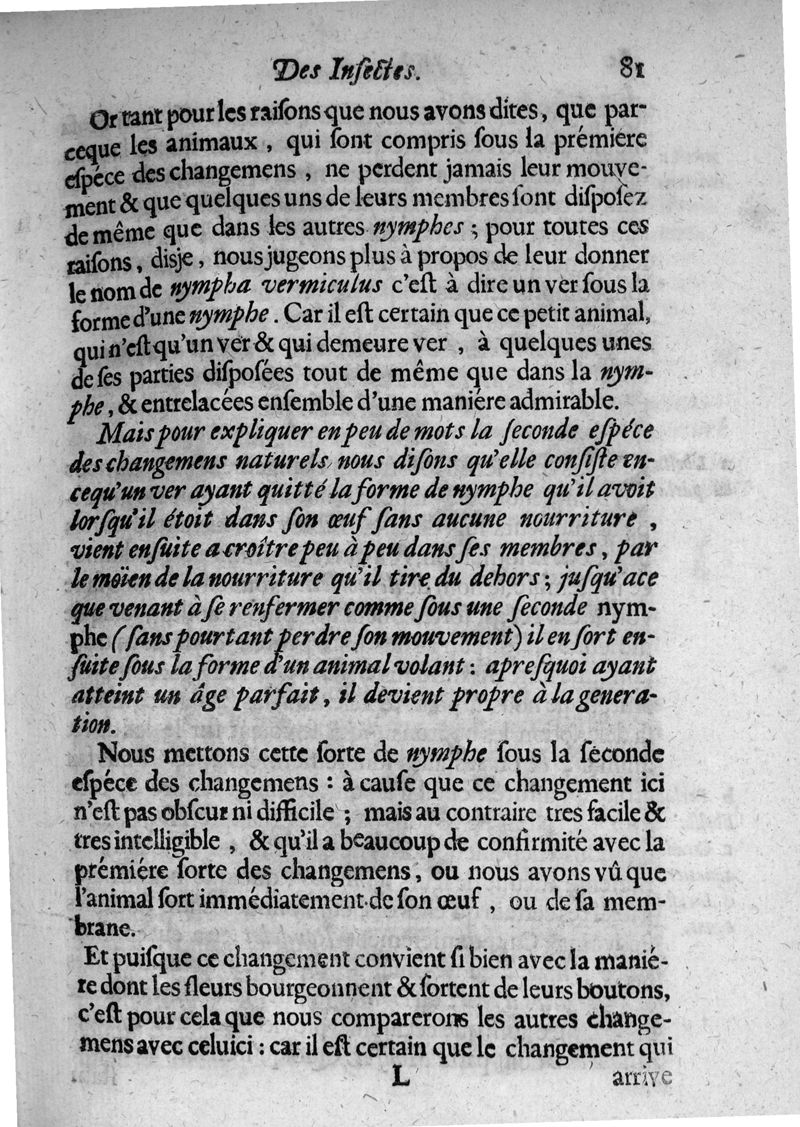 Des Inſectes. 81
Or tant pour les raiſons que nous avons dites, que par-
ceque les animaux , qui ſont compris ſous la prémiere
eſpéce des changemens , ne perdent jamais leur mouve-
ment & que quelques uns de leurs membres ſont diſpoſez
de même que dans les autres nymphes ; pour toutes ces
raiſons, disje, nous jugeons plus à propos de leur donner
le nom de nympha vermiculus c'eſt à dire un ver ſous la
forme d'une nymphe. Car il eſt certain que ce petit animal,
qui n'eſt qu'un ver & qui demeure ver , à quelques unes
de ſes parties diſpoſées tout de même que dans la nym-
phe, & entrelacées enſemble d'une maniére admirable.
Mais pour expliquer en peu de mots la ſeconde eſpéce
des changemens naturels, nous diſons qu'elle conſiſte en-
cequ'un ver ayant quitté la forme de nymphe qu'il avoit
lorſqu'il étoit dans ſon œuf ſans aucune nourriture ,
vient enſuite a croître peu à peu dans ſes membres, par
le moïen de la nourriture qu'il tire du dehors; juſqu'a ce
que venant à ſe renfermer comme ſous une ſeconde nym-
phe (ſans pourtant perdre ſon mouvement) il en ſort en-
ſuite ſous la forme d'un animal volant : apreſquoi ayant
atteint un âge parfait, il devient propre à la genera-
tion.
Nous mettons cette ſorte de nymphe ſous la ſeconde
eſpéce des changemens : à cauſe que ce changement ici
n'eſt pas obſcur ni difficile ; mais au contraire tres facile &
tres intelligible , & qu'il a beaucoup de confirmité avec la
prémiére ſorte des changemens, ou nous avons vû que
l'animal ſort immédiatement de ſon œuf , ou de ſa mem-
brane.
Et puiſque ce changement convient ſi bien avec la manié-
re dont les fleurs bourgeonnent & ſortent de leurs boutons,
c'eſt pour cela que nous comparerons les autres change-
mens avec celuici : car il eſt certain que le changement qui
L arrive